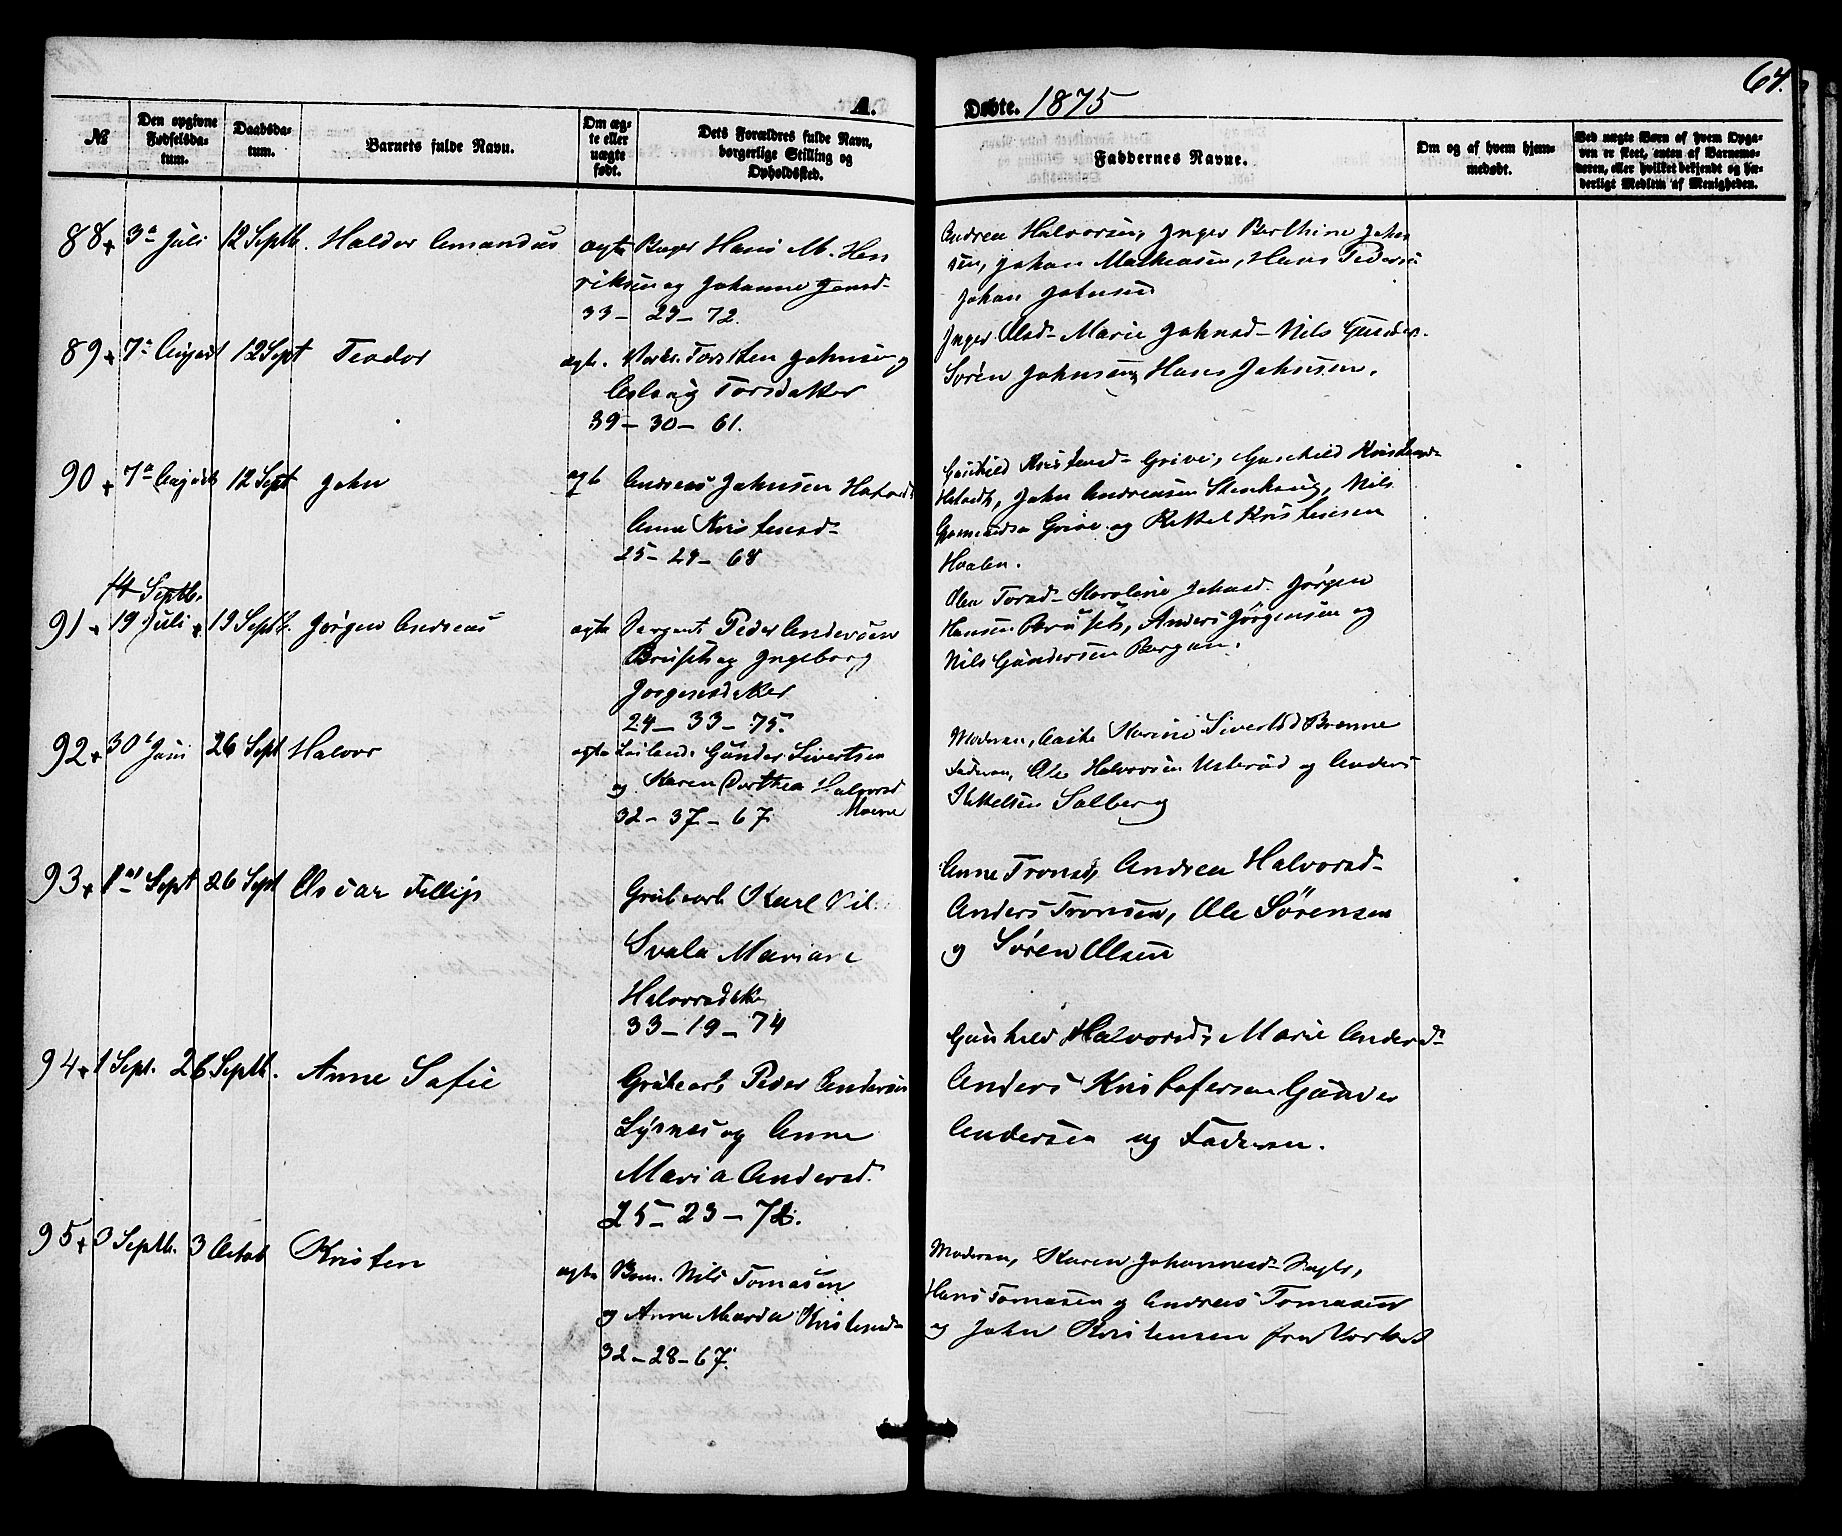 64.
A.
Døbte. 1875
№
Den opgivne Fødselsdatum.
Daabsdatum.
Barnets fulde Navn.
Om ægte eller uægte født.
Dets Forældres fulde Navn, borgerlige Stilling og Opholdssted.
Faddernes Navne.
Om og af hvem hjemmedøbt.
Ved uægte Børn af hvem Opgaven er skeet, enten af Barnemoderen, eller hvilket bekjendt og hæderligt Medlem af Menigheden.
88 3 Juli 12 Septb. Haldor Amandus ægte Hans M. Hen
riksen og Johanne Jonsd-
33 - 29 - 72.
Andrea Halvorsen, Inger Berthine Johan
sen, Johan Mathiasen, Hans Peders
Johan Johnsen
89 7 August 12 Sept Teodor ægte. Torsten Johnsen og
Aslaug Torsdatter
39 - 30 - 61.
Inger Olsd- Marie Johnsd- Nils Gunders.
Sören Johnsen, Hans Johnsen.
90 7 August 12 Sept John ægte Andreas Johnsen
Anne Kristensd-
25 - 29 - 68
Gunhild Kristensd- Grive, Gunhild Kristensd-
John Andreasen Nils
Grive og Kittel Kristensen
Haalen.
14 Septb.
91 19 Juli 19 Septb. Jörgen Andreas ægte Sergent Peder Andersen
og Ingeborg
Jørgensdatter
24 - 33 - 75.
Torsd- Karoline Johnsd. Jörgen
Hansen Anders Jörgensen og
Nils Gundersen Bergan.
92 30 Juni 26 Sept Halvor ægte Gunder Sivertsen
og Karen Dorthea Halvorsd
Moene
32 - 37 - 67.
Moderen, Karine Sivertsd Brenne
Faderen, Ole Halvorsen Usterud og Anders
Kittelsen Solberg
93 1 Sept 26 Sept Oscar Fillip
Grubearb Karl Vil.
Svala Mariane
Halvorsdatter
33 - 19 - 74
Anne Tronsd, Andrea Halvorsd-
Anders Tronsen, Ole Sörensen
og Sören Olsen
94 1 Sept. 26 Septb. Anne Safie
Grubearb Peder Andersen
Lysnes og Anne
Maria Andersd.
25 - 23 - 72.
Gunhild Halvorsd, Marie Andersd-
Anders Kristofersen Gunder
Andersen og Faderen.
95 Septb. 3 Octob Kristen ægte Nils Tomasen
og Anne Marta Kristensd-
32 - 28 - 67.
Moderen, Karen Johannesd-
Hans Tomasen og Andreas Tomasen
og John Kristensen fra Værket